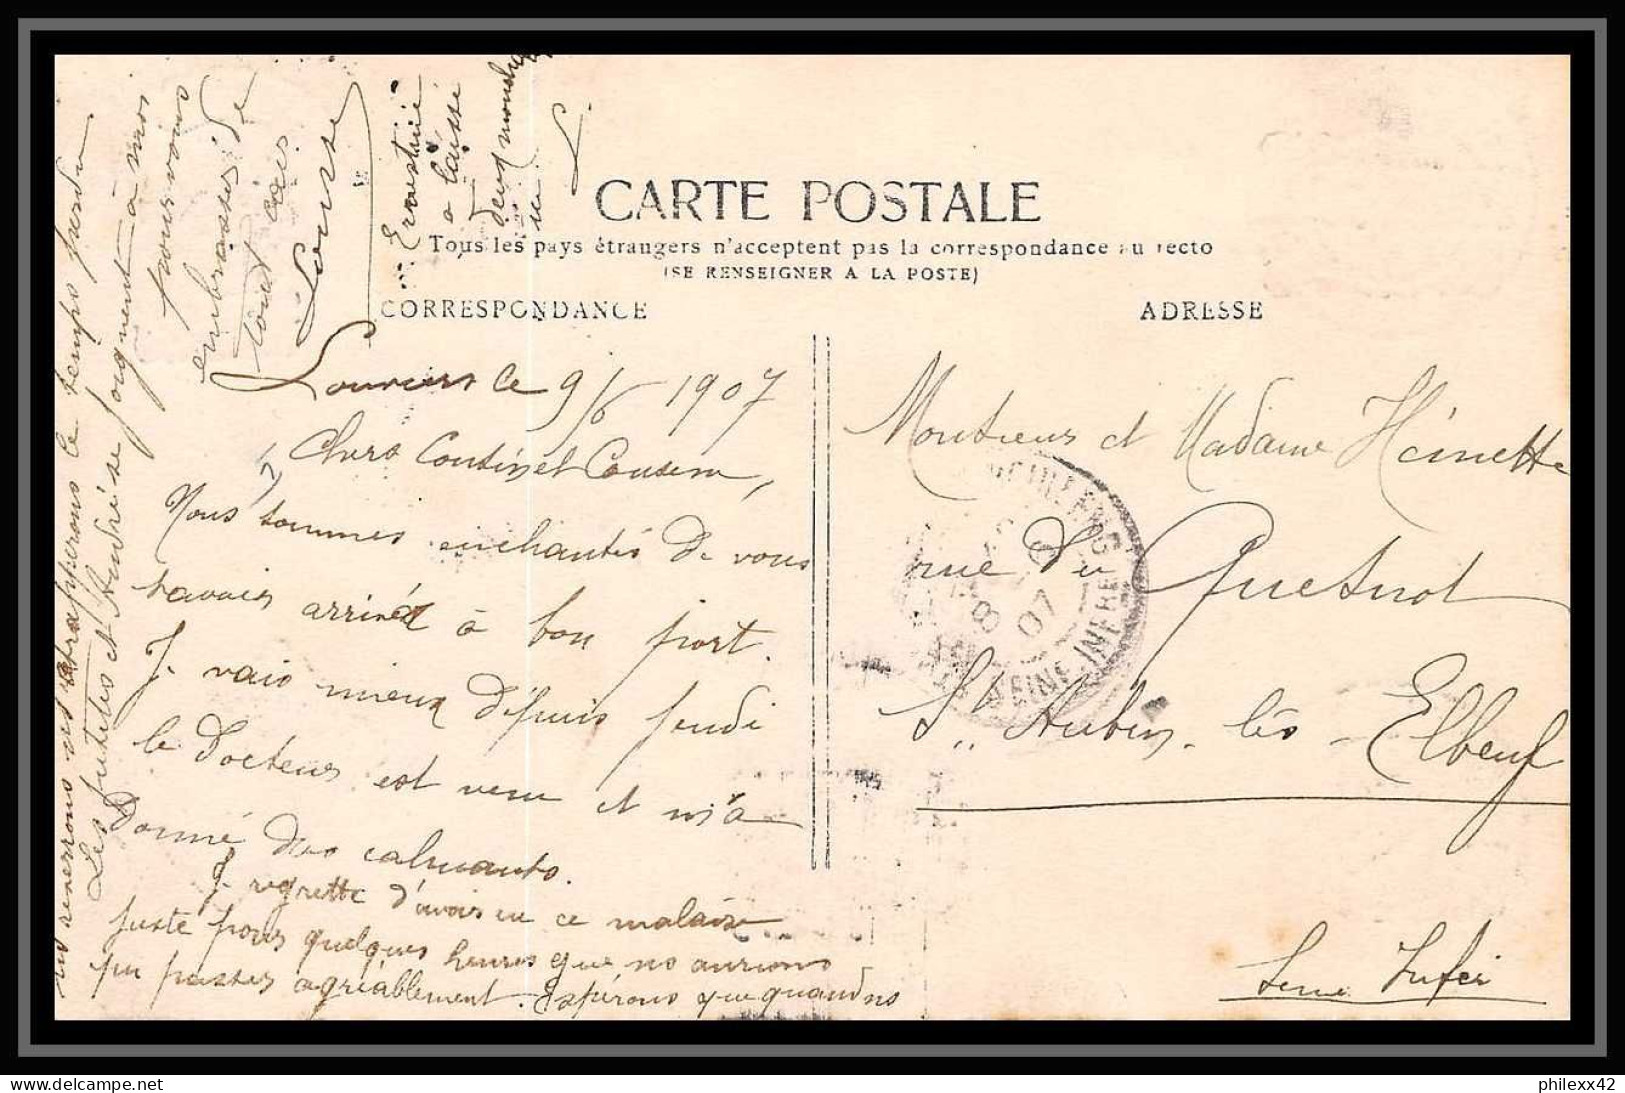 CARTE POSTALE
Tous les pays étrangers n'acceptent pas la correspondance au recto
(SE RENSEIGNER A LA POSTE)
CORRESPONDANCE
ADRESSE
Louviers le 9/6 1907
Chers Cousin et Cousine,
Nous sommes enchantés de vous
savoir arrivés à bon port.
Je vais mieux depuis jeudi
le Docteur est venu et m'a
Donné des calmants.
Je regrette d'avoir eu ce malaise
juste pour quelques heures que ns aurions
pu passer agréablement. Espérons que quand ns
ns reverrons ns rattraperons le temps perdu.
Les petites et Andrée se joignent à moi
pour vous
embrasser de
tout cœur.
Louise
Ernestine
a laissé
deux
L
Monsieur et Madame Heinette
rue du Quesnot
St Aubin-lès-Elbeuf
Seine Infér
SEINE INFRE
8
07
philexx42